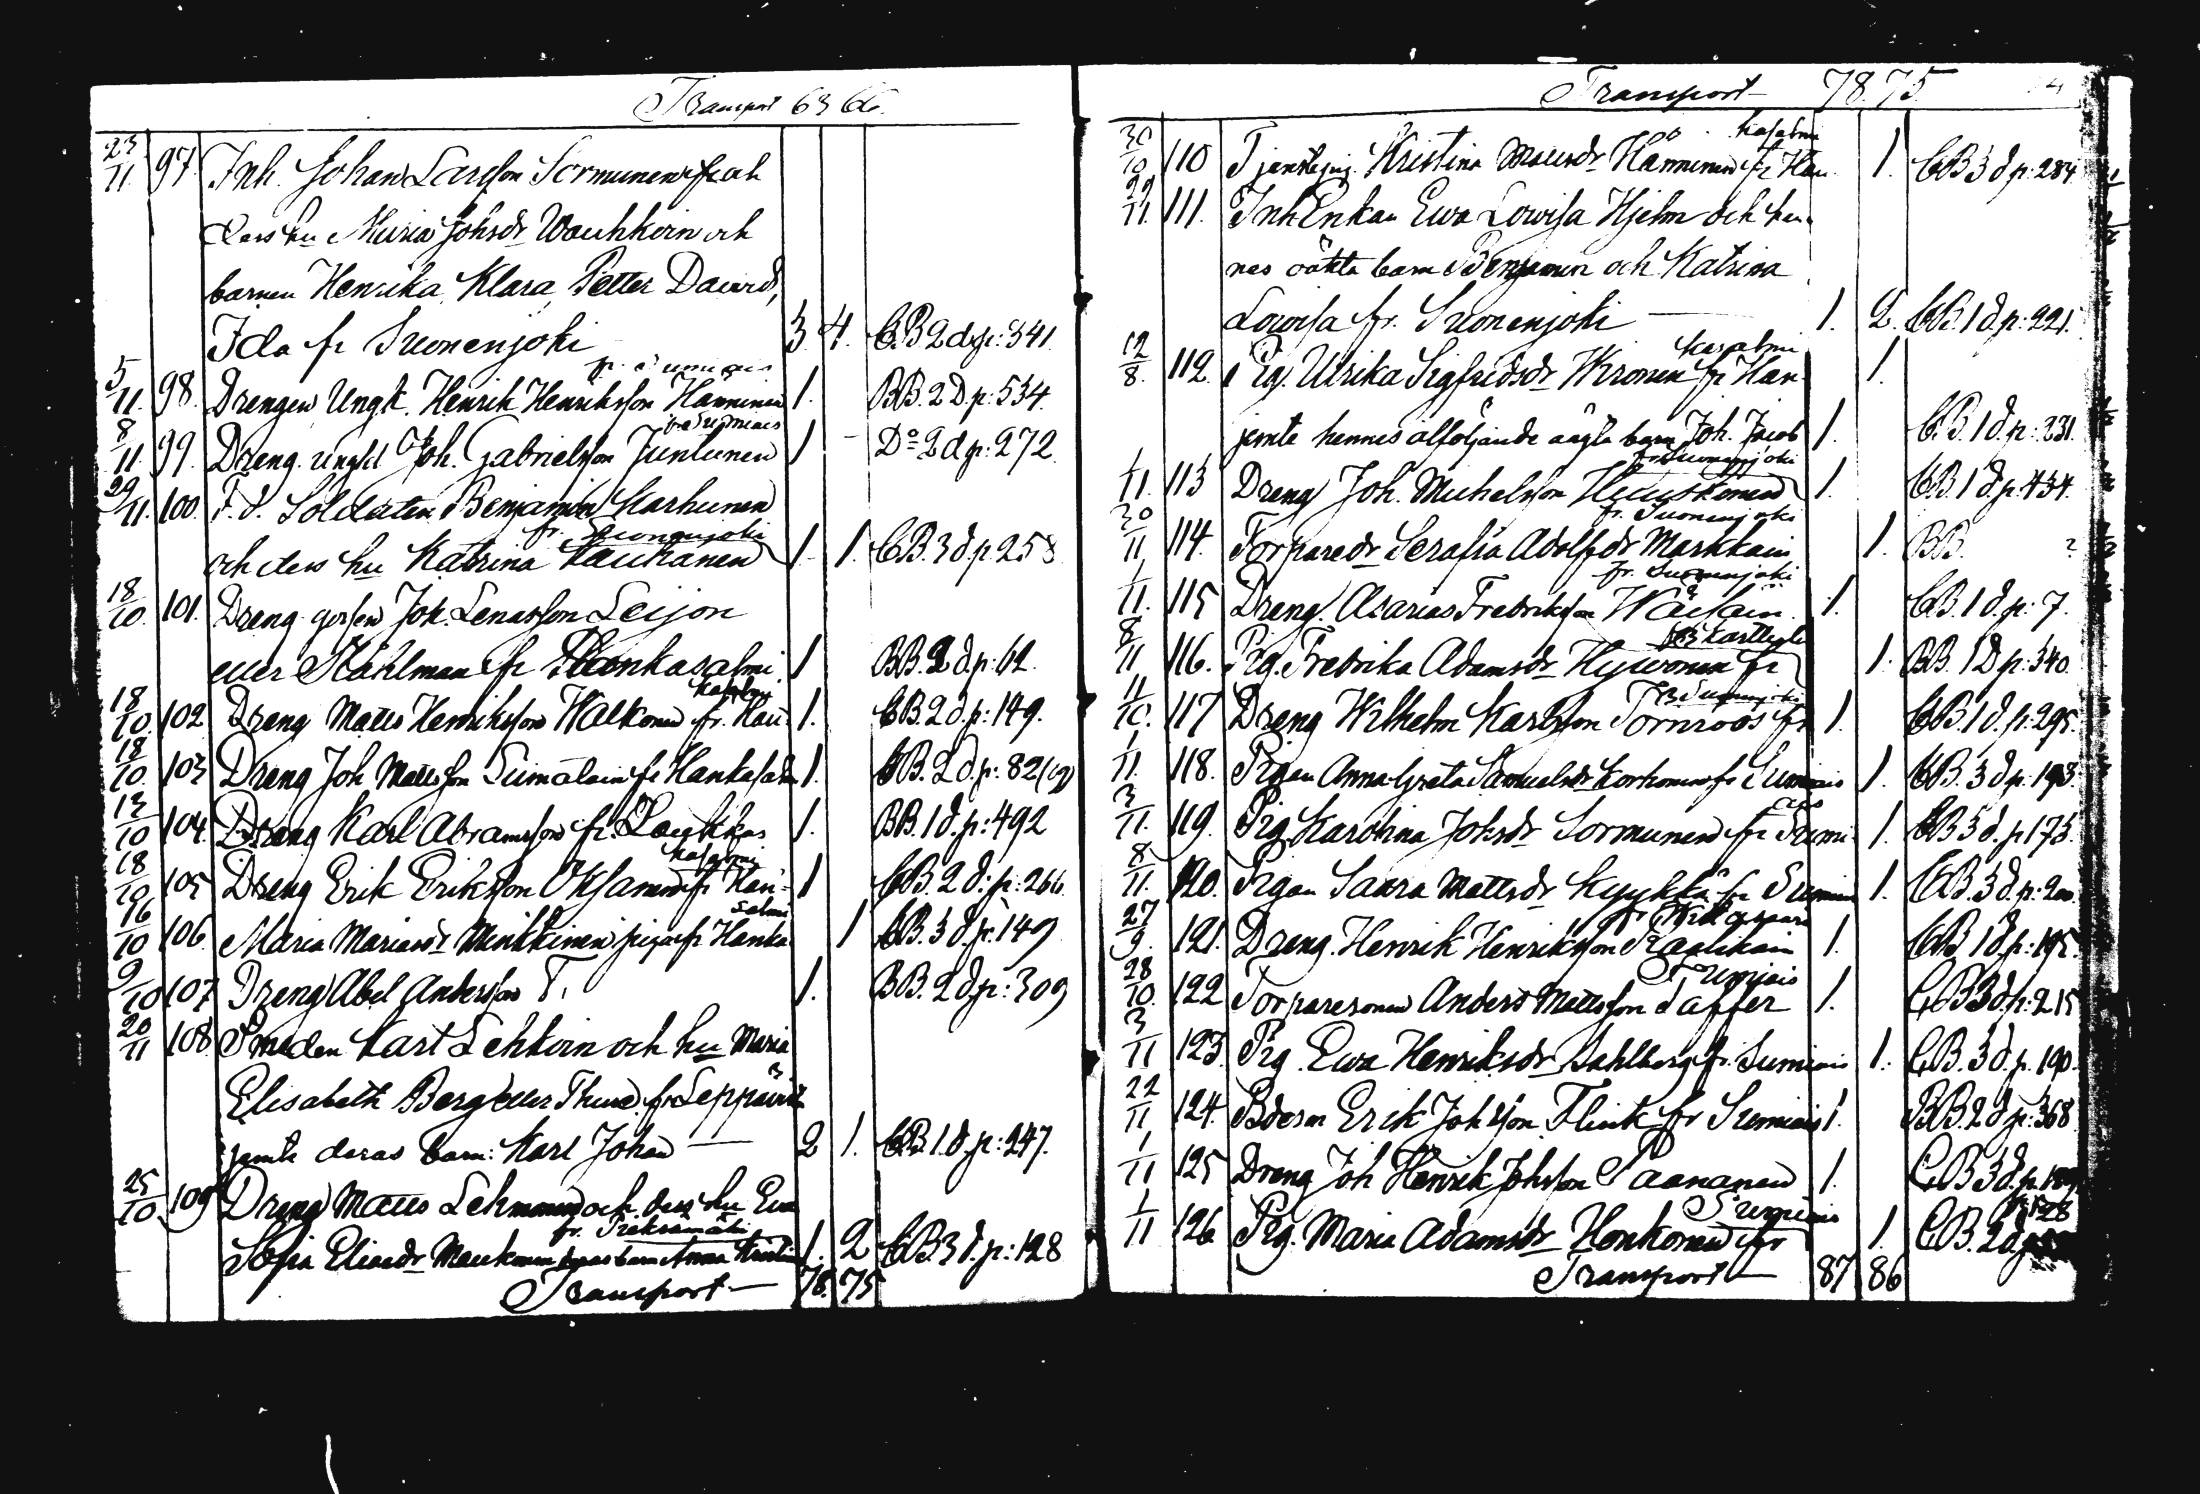 Transport 63 66.
23/11 97 Inh. Johan Larsson Sormunen och
dess hu Maria Johsdr Wauhkoin och
barnen Henrika, Klara, Petter, David,
Ida fr Suonenjoki 3 4. CB 2 d.p: 341.
fr. Sumiais
5/11. 98. Drengen Ungk. Henrik Henriksson Hänninen 1. BB. 2 D p: 534.
fr Sumiais
8/11 99. Dreng. ungkl Joh. Gabrielsson Juntunen 1 - Do 2 d p: 272.
29/11. 100. F.d. Soldaten Benjamin Karhunen
fr. Suonenjoki
och dess hu Katrina Kaukanen 1 1. CB. 3 d. p 258
18/10. 101. Dreng gossen Joh. Lenasson Leijon
eller Ståhlman fr Hankasalmi. 1 BB. 2 d. p: 62.
kasalmi
18/10. 102 Dreng Matts Henriksson Walkonen fr. Han- 1. CB. 2 d. p: 149.
18/10. 103 Dreng Joh Mattsson Sumälain fr Hankasalm 1. CB. 2 d. p: 82
13/10 104. Dreng Karl Abramsson fr. Laukkas 1. BB. 1 d. p: 492
kasalmi
18/10 105 Dreng Erik Eriksson Oksanen fr Han- 1 CB. 2 d: p: 266
salmi
16/10 106. Maria Mariasdr Minkkinen piga fr Hanka 1 CB. 3 d. p: 149
9/10 107 Dreng Abel Andersson T. 1. BB. 2 d p: 309
20/11 108. Smeden Karl Lehkoin och hu Maria
Elisabeth Berg eller Thure fr Leppävirta
jemte deras barn: Karl Johan — 2 1. CB. 1 d. p: 247.
25/10. 109 Dreng Matts Lehmonen och dess hu Eva
fr. Pieksämäki
Sofia Eliaedr Maukonen deras barn Anna Kristina 1. 2 CB. 3 d. p: 128
Transport — 78. 75
Transport — 78. 75
kasalmi
30/10 110 Tjenstepig. Kristina Mattsdr Hänninen fr Han- 1. CB 3 d p: 284
29/11. 111. Inh Enkan Ewa Lowisa Hjelm och hen-
nes oäkta barn Benjamin och Katrina
Lowisa fr. Suonenjoki — 1. 2. CB. 1 d p: 221.
kasalmi
12/8. 112. Pig. Ulrika Sigfridsdr Kronen fr Han- 1.
jemte hennes åtföljande oägta barn Joh. Jacob 1. CB. 1 d. p: 231.
fr Suonenjoki
1/11. 113 Dreng Joh. Michelsson 1. CB. 1 d. p. 434.
fr. Suonenjoki
30/11 114. Torparedr Serafia Adolfsdr Markkain 1. BB. ?
fr. Suonenjoki
1/11. 115 Dreng. Asarias Fredriksson Wäisäin 1. CB. 1 d. p: 7.
Karttula
8/11 116. Pig. Fredrika Adamsdr Hyvönen fr 1. BB. 1 D p: 340.
Suonenjoki
4/10. 117 Dreng Wilhelm Karlsson Törnroos fr 1. CB. 1 d. p: 295.
1/11. 118. Pigan Anna Greta Samuelsdr Korhonen fr Sumiais 1. CB. 3 d p: 193.
ais
3/11. 119. Pig. Karolina Johsdr Sormunen fr Sumi- 1. CB 3 d. p 173.
8/11. 120. Pigan Saara Mattsdr Kyykkä fr Sumiais 1. CB. 3 d. p: 200.
27/9. 121. Dreng. Henrik Henriksson 1. CB 1 d. p: 195.
Sumiais
28/10. 122 Torparesonen Anders Mattsson Tapper 1. CB 3 d. p: 215
3/11 123. Pig. Ewa Henriksdr Dahlberg fr. Sumiais 1. CB. 3 d. p. 190.
22/11 124. Bdesn Erik Johsson Flink fr Sumiais 1. BB. 2 d p: 368
1/11 125 Dreng Joh Henrik Johsson Paananen 1. CB 3 d. p.
Sumiais 128
1/11 126 Pig. Maria Adamsdr Honkonen fr 1. CB. 2 d.
Transport — 87 86